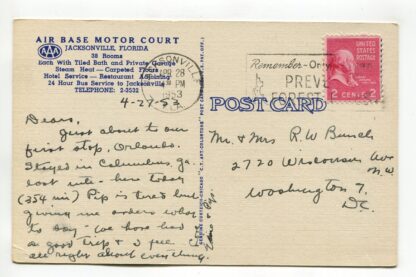 AIR BASE MOTOR COURT
AAA
JACKSONVILLE, FLORIDA
38 Rooms
Each with Tiled Bath and Private Garage
Steam Heat — Carpeted Floors
Hotel Service — Restaurant Adjoining
24 Hour Bus Service to Jacksonville
TELEPHONE: 2-3532
4-27-53
Dears,
Just about to our
first stop, Orlando.
Stayed in Columbus, Ga.
last nite - here today
(354 mi) Pip is tired but
giving me orders what
to say - We have had
a good trip & I feel
all right about everything.
APR 28
PM
1953
FLA.
Remember - Only
PREVE
FOREST
UNITED STATES
POSTAGE
2 CENTS 2
POST CARD
Mr. & Mrs R. W. Bunch
2720 Wisconsin Ave
N.W.
Washington 7,
DC.